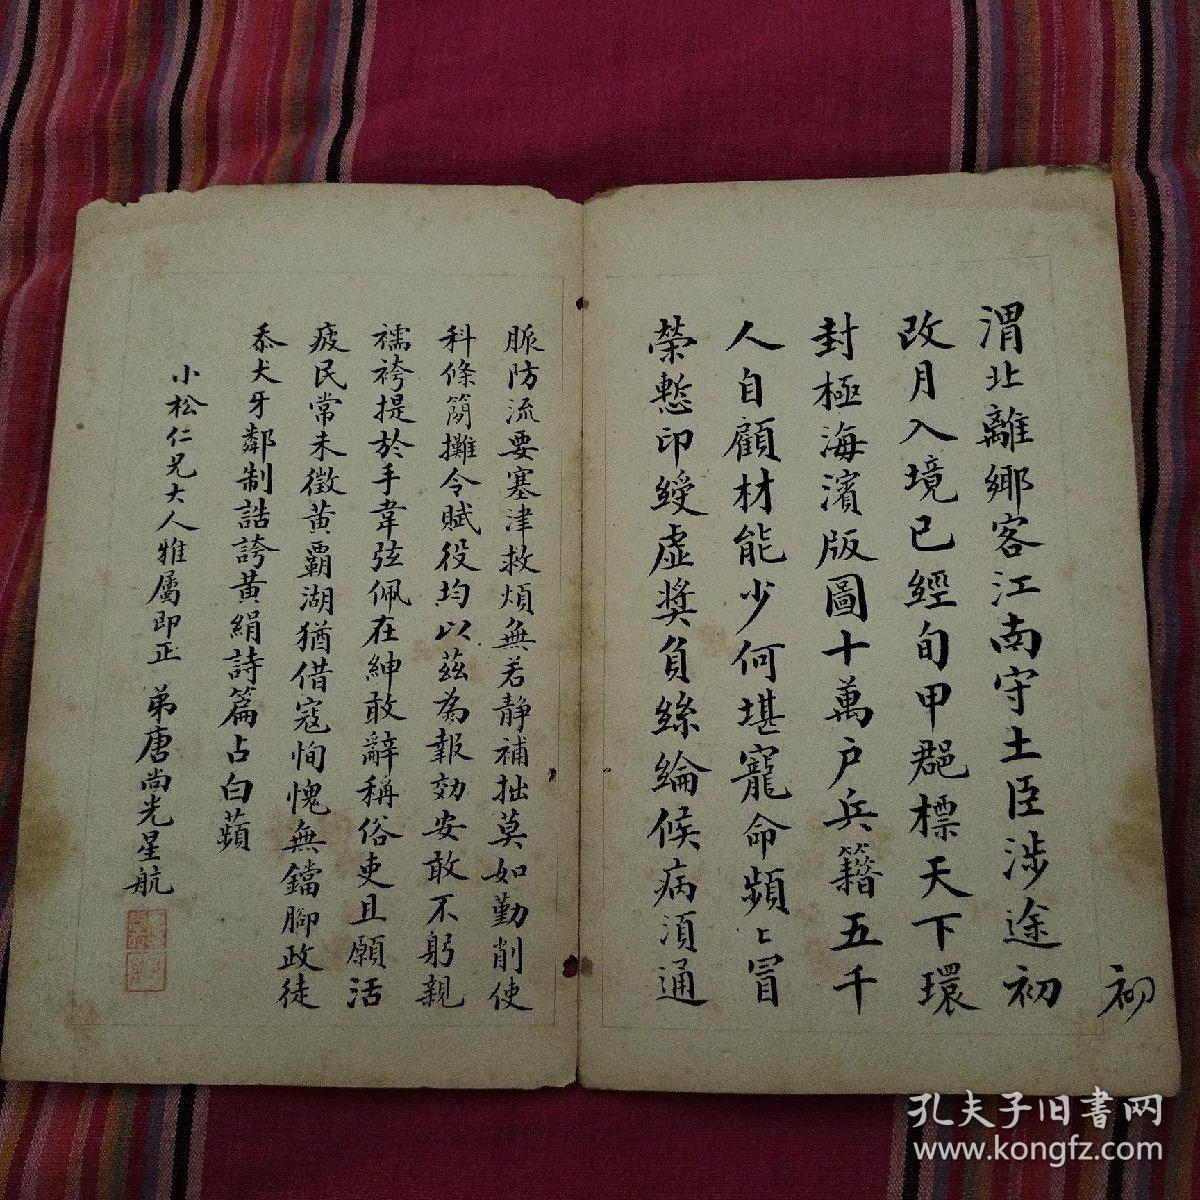 渭北離鄉客江南守土臣涉途初
改月入境已經旬甲郡標天下環
封極海濱版圖十萬户兵籍五千
人自顧材能少何堪寵命頻〻冒
榮慙印綬虛奬負絲綸候病湏通
脈防流要塞津救煩無若靜補拙莫如勤削使
科條簡攤令賦役均以茲為報効安敢不躬親
襦袴提於手韋弦佩在紳敢辭稱俗吏且願活
疲民常未徵黄覇湖猶借寇恂愧無鐺脚政徒
忝犬牙鄰制誥誇黄絹詩篇占白蘋
小松仁兄大人雅屬即正 弟唐尚光星航
初
孔夫子旧書网
www.kongfz.com